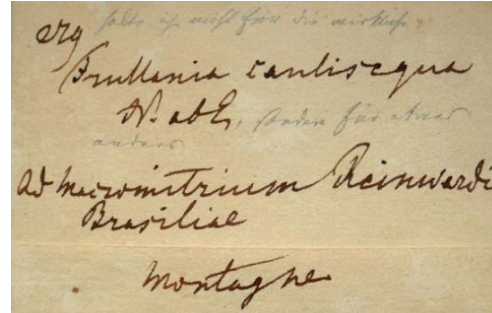 279 halte ich nicht für die wirkliche
Frullania caulisequa
N. ab E. sondern für etwas
anders
Ad Macromitrium Reinwardi
Brasiliae
Montagne